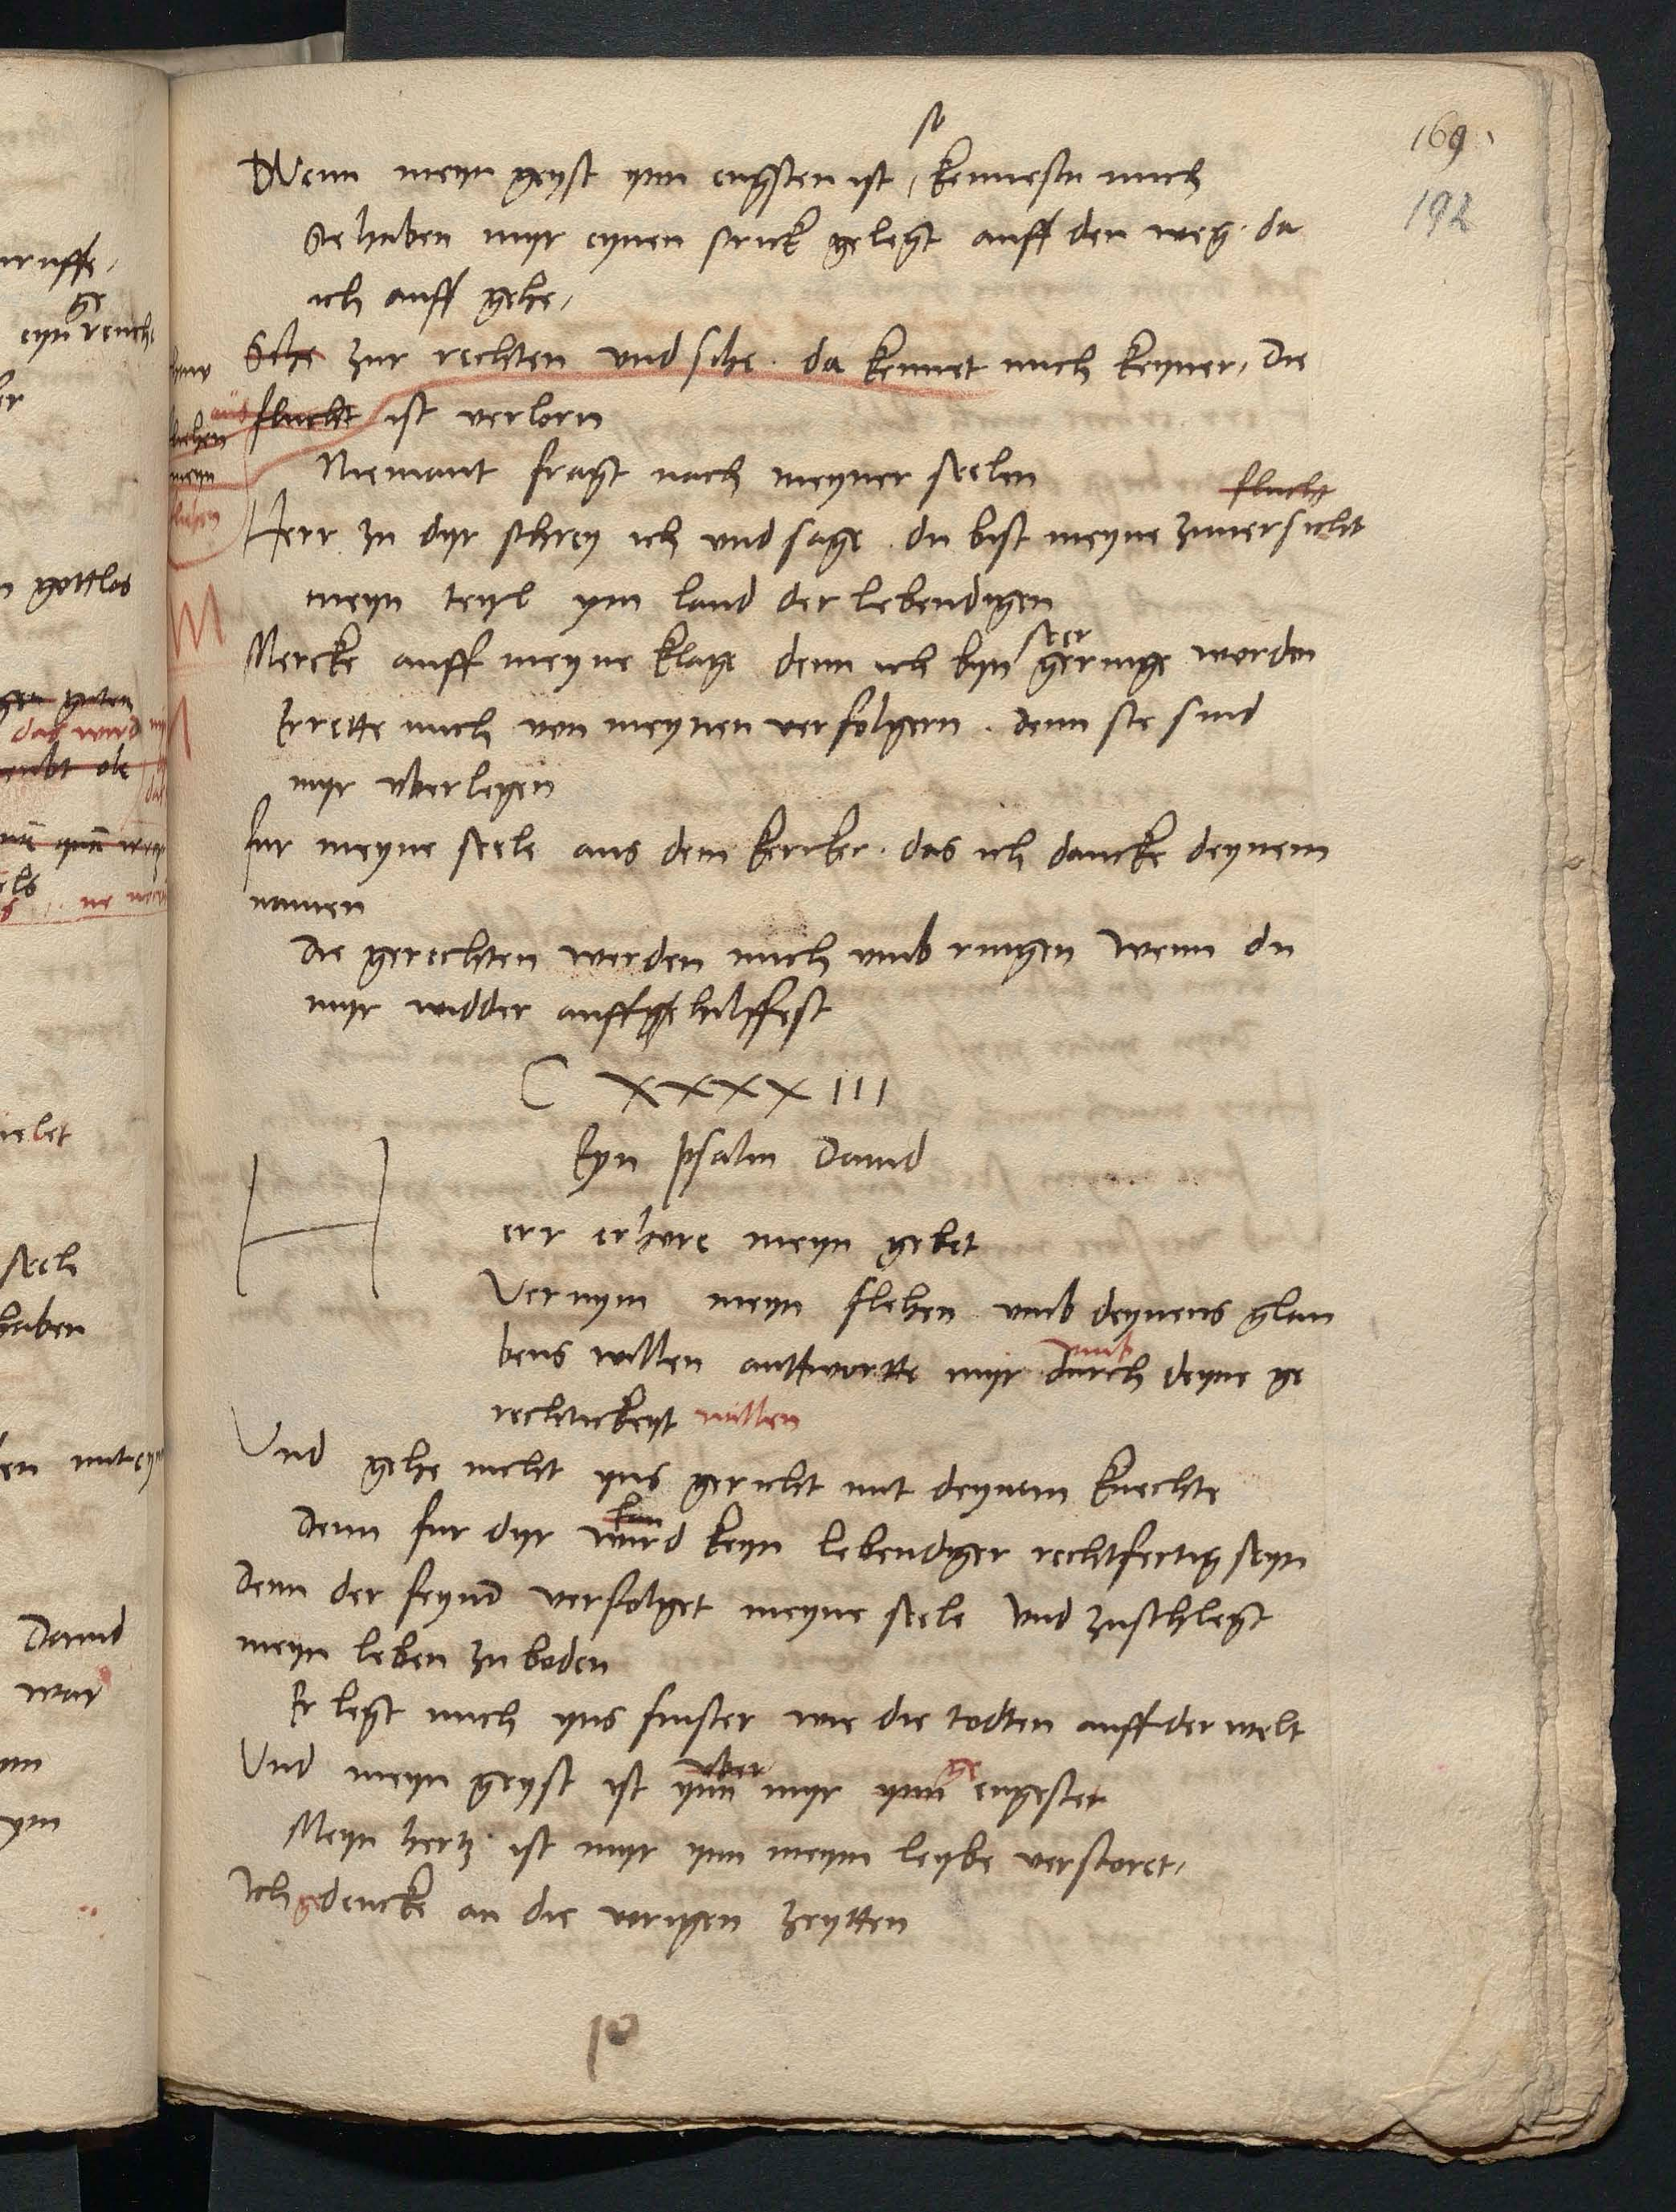 169
192
so
Wenn meyn geyst ynn engsten ist, kennestu mich
Sie haben myr eynen strick gelegt auff den weg. da
ich auff gehe,
Sehe zur rechten vnd sihe. da kennet mich keyner, Die
flucht ist verlorn
aus
meyn
Niemant fragt nach meyner seelen
flucht
Herr zu dyr schrey ich vnd sage. du bist meyne zuuersicht
meyn teyl ym land der lebendigen
seer
Mercke auff meyne klage denn ich byn geringe worden
Errette mich von meynen verfolgern. denn sie sind
myr vberlegen
fur meyne seele aus dem kercker. das ich dancke deynem
namen
Die gerechten werden mich vmb ringen wenn du
myr widder auff hilffest
C XXXX III
Eyn psalm Dauid
H
err erhore meyn gebet
Vernym meyn flehen vmb deynens glau
vmb
bens willen anttwortte myr durch deyne ge
rechtickeyt willen
Vnd gehe nicht yns gericht mit deynem knechte
kan
Denn fur dyr wird keyn lebendiger rechtfertig seyn
Denn der feynd verfolget meyne seele Vnd zuschlegt
meyn leben zu boden
Er legt mich yns finster wie die todten auff der welt
vber ge
Vnd meyn geyst ist ynn myr ynn engestet
Meyn hertz ist myr ynn meym leybe verstoret,
Ich gedencke an die vorigen zeytten
gottlos
das wird
haben
Dauid
war
ym